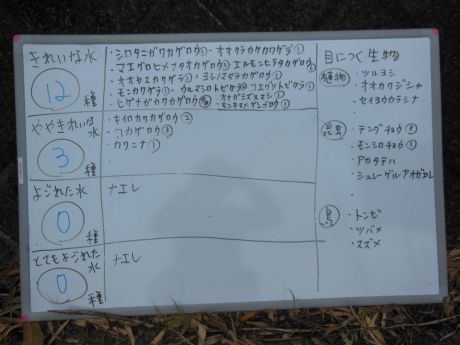 きれいな水
12種
・シロタニガワカゲロウ②・オオクラカケカワゲラ①
・マエグロヒメフタオカゲロウ③エルモンヒラタカゲロウ①
・オオヤマカワゲラ①・ヨシノマダラカゲロウ①
・モンカワゲラ①・ウルマーシマトビケラ②フエグリトビケラ①
・ヒゲナガカワトビケラ オナガミズスマシ①
モンキマメゲンゴロウ①
ややきれいな水
3種
・キイロカワカゲロウ②
・アカゲロウ③
・カワニナ①
よごれた水
0種
ナシ
とてもよごれた水
0種
ナシ
目につく生物
植物・ツルヨシ
・オオカワジシャ
・セイヨウカラシナ
昆虫・テングチョウ②
・モンシロチョウ②
・アカタテハ
・シュレーゲルアオガエル
鳥・トンビ
・ツバメ
・スズメ